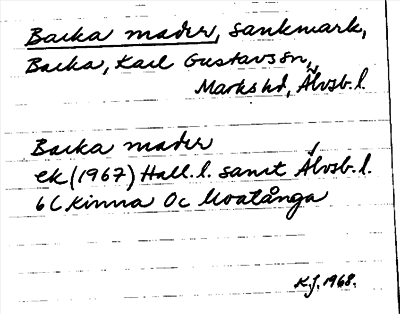 Backa mader, sankmark,
Backa, Karl Gustavsson,
Marks hd, Älvsb. l.
Backa mader
ek (1967) Hall. l. samt Älvsb. l.
6C Kinna 0c
K.J. 1968.